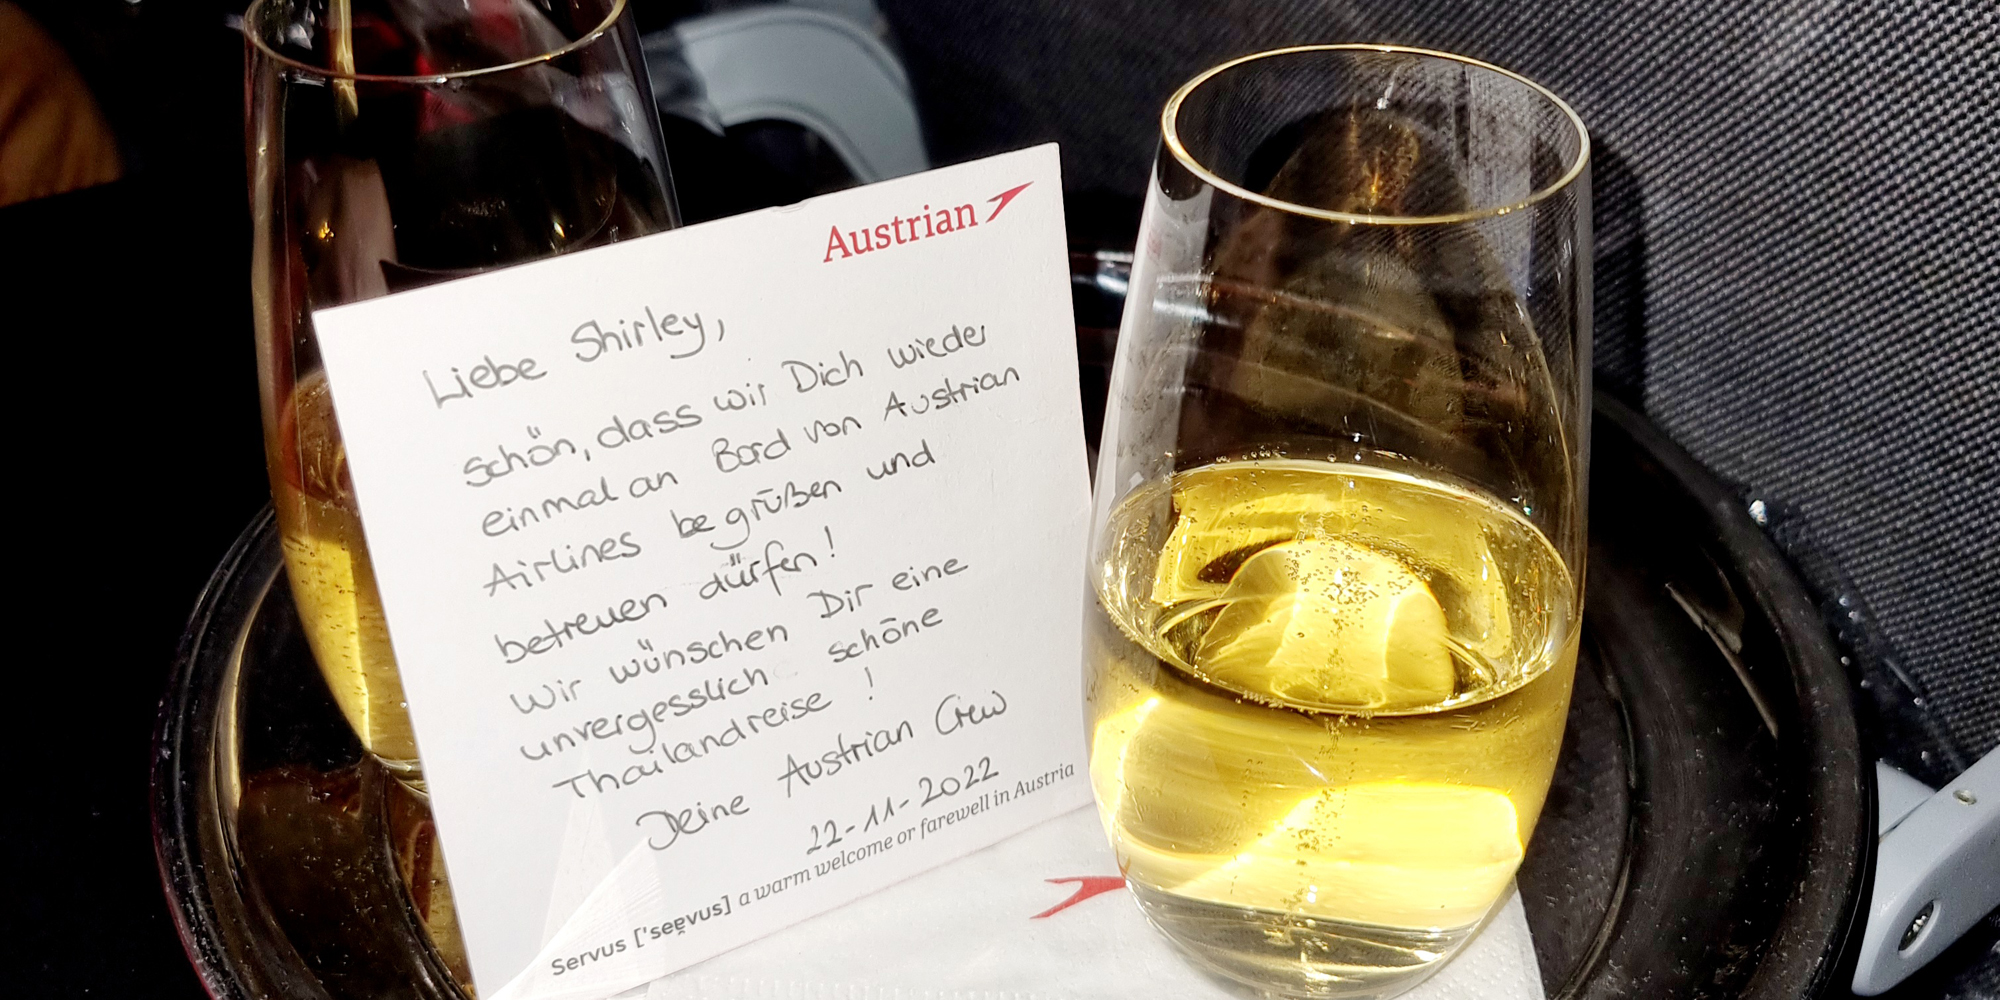 Austrian
Liebe Shirley,
schön, dass wir Dich wieder
einmal an Bord von Austrian
Airlines begrüßen und
betreuen dürfen!
Wir wünschen Dir eine
unvergesslich schöne
Thailandreise !
Deine Austrian Crew
22-11-2022
Servus ['seɐ̯vus] a warm welcome or farewell in Austria